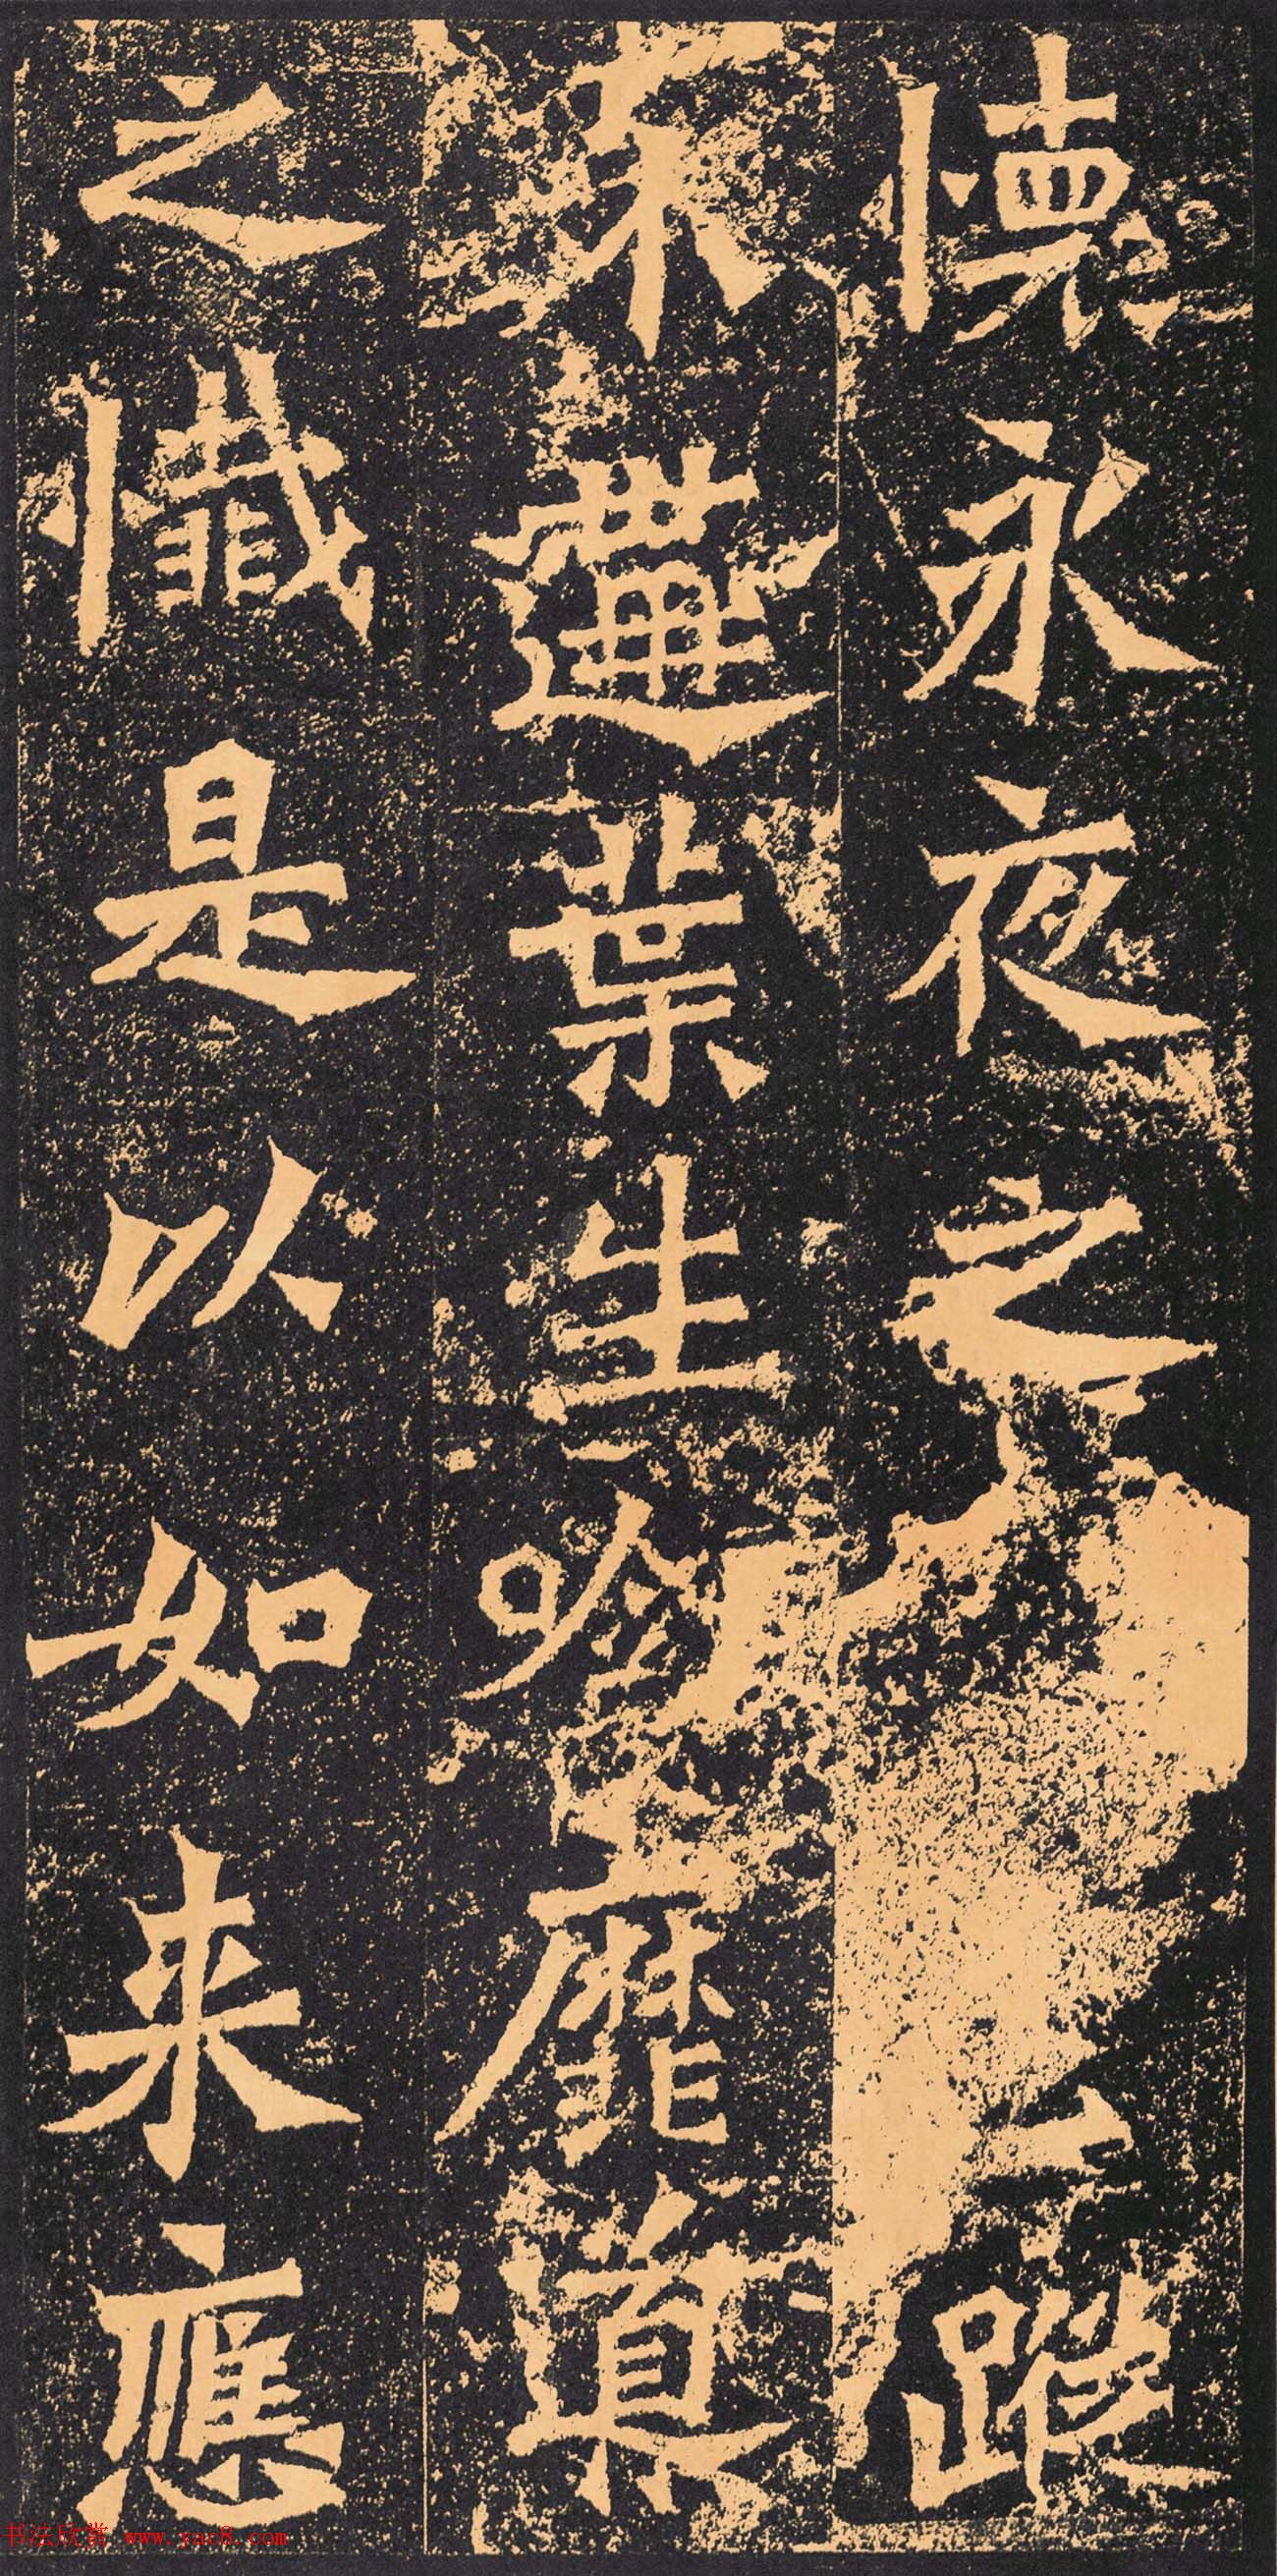 懷永夜之蹤
葉生唅靡導
之懺是以如来應
书法欣赏 www.yac8.com